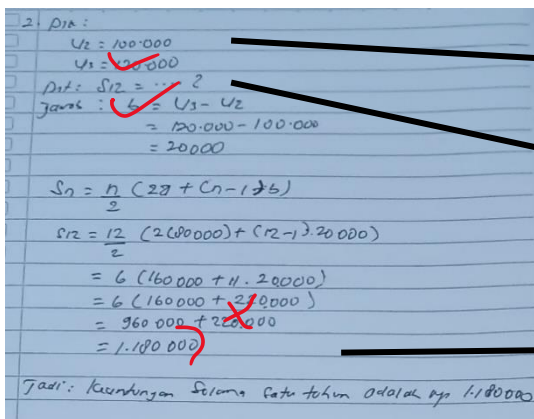 2. Dik :
U2 = 100.000
U3 = 120.000
Dit : S12 = .... ?
Jawab : b = U3 - U2
= 120.000 - 100.000
= 20000
Sn = n/2 (2a + (n-1) b)
S12 = 12/2 (2(80000) + (12-1).20000)
= 6 (160000 + 11. 20.000)
= 6 (160000 + 220.000)
= 960 000 + 220.000
= 1.180 000
Jadi : Keuntungan Selama satu tahun adalah Rp 1.180000